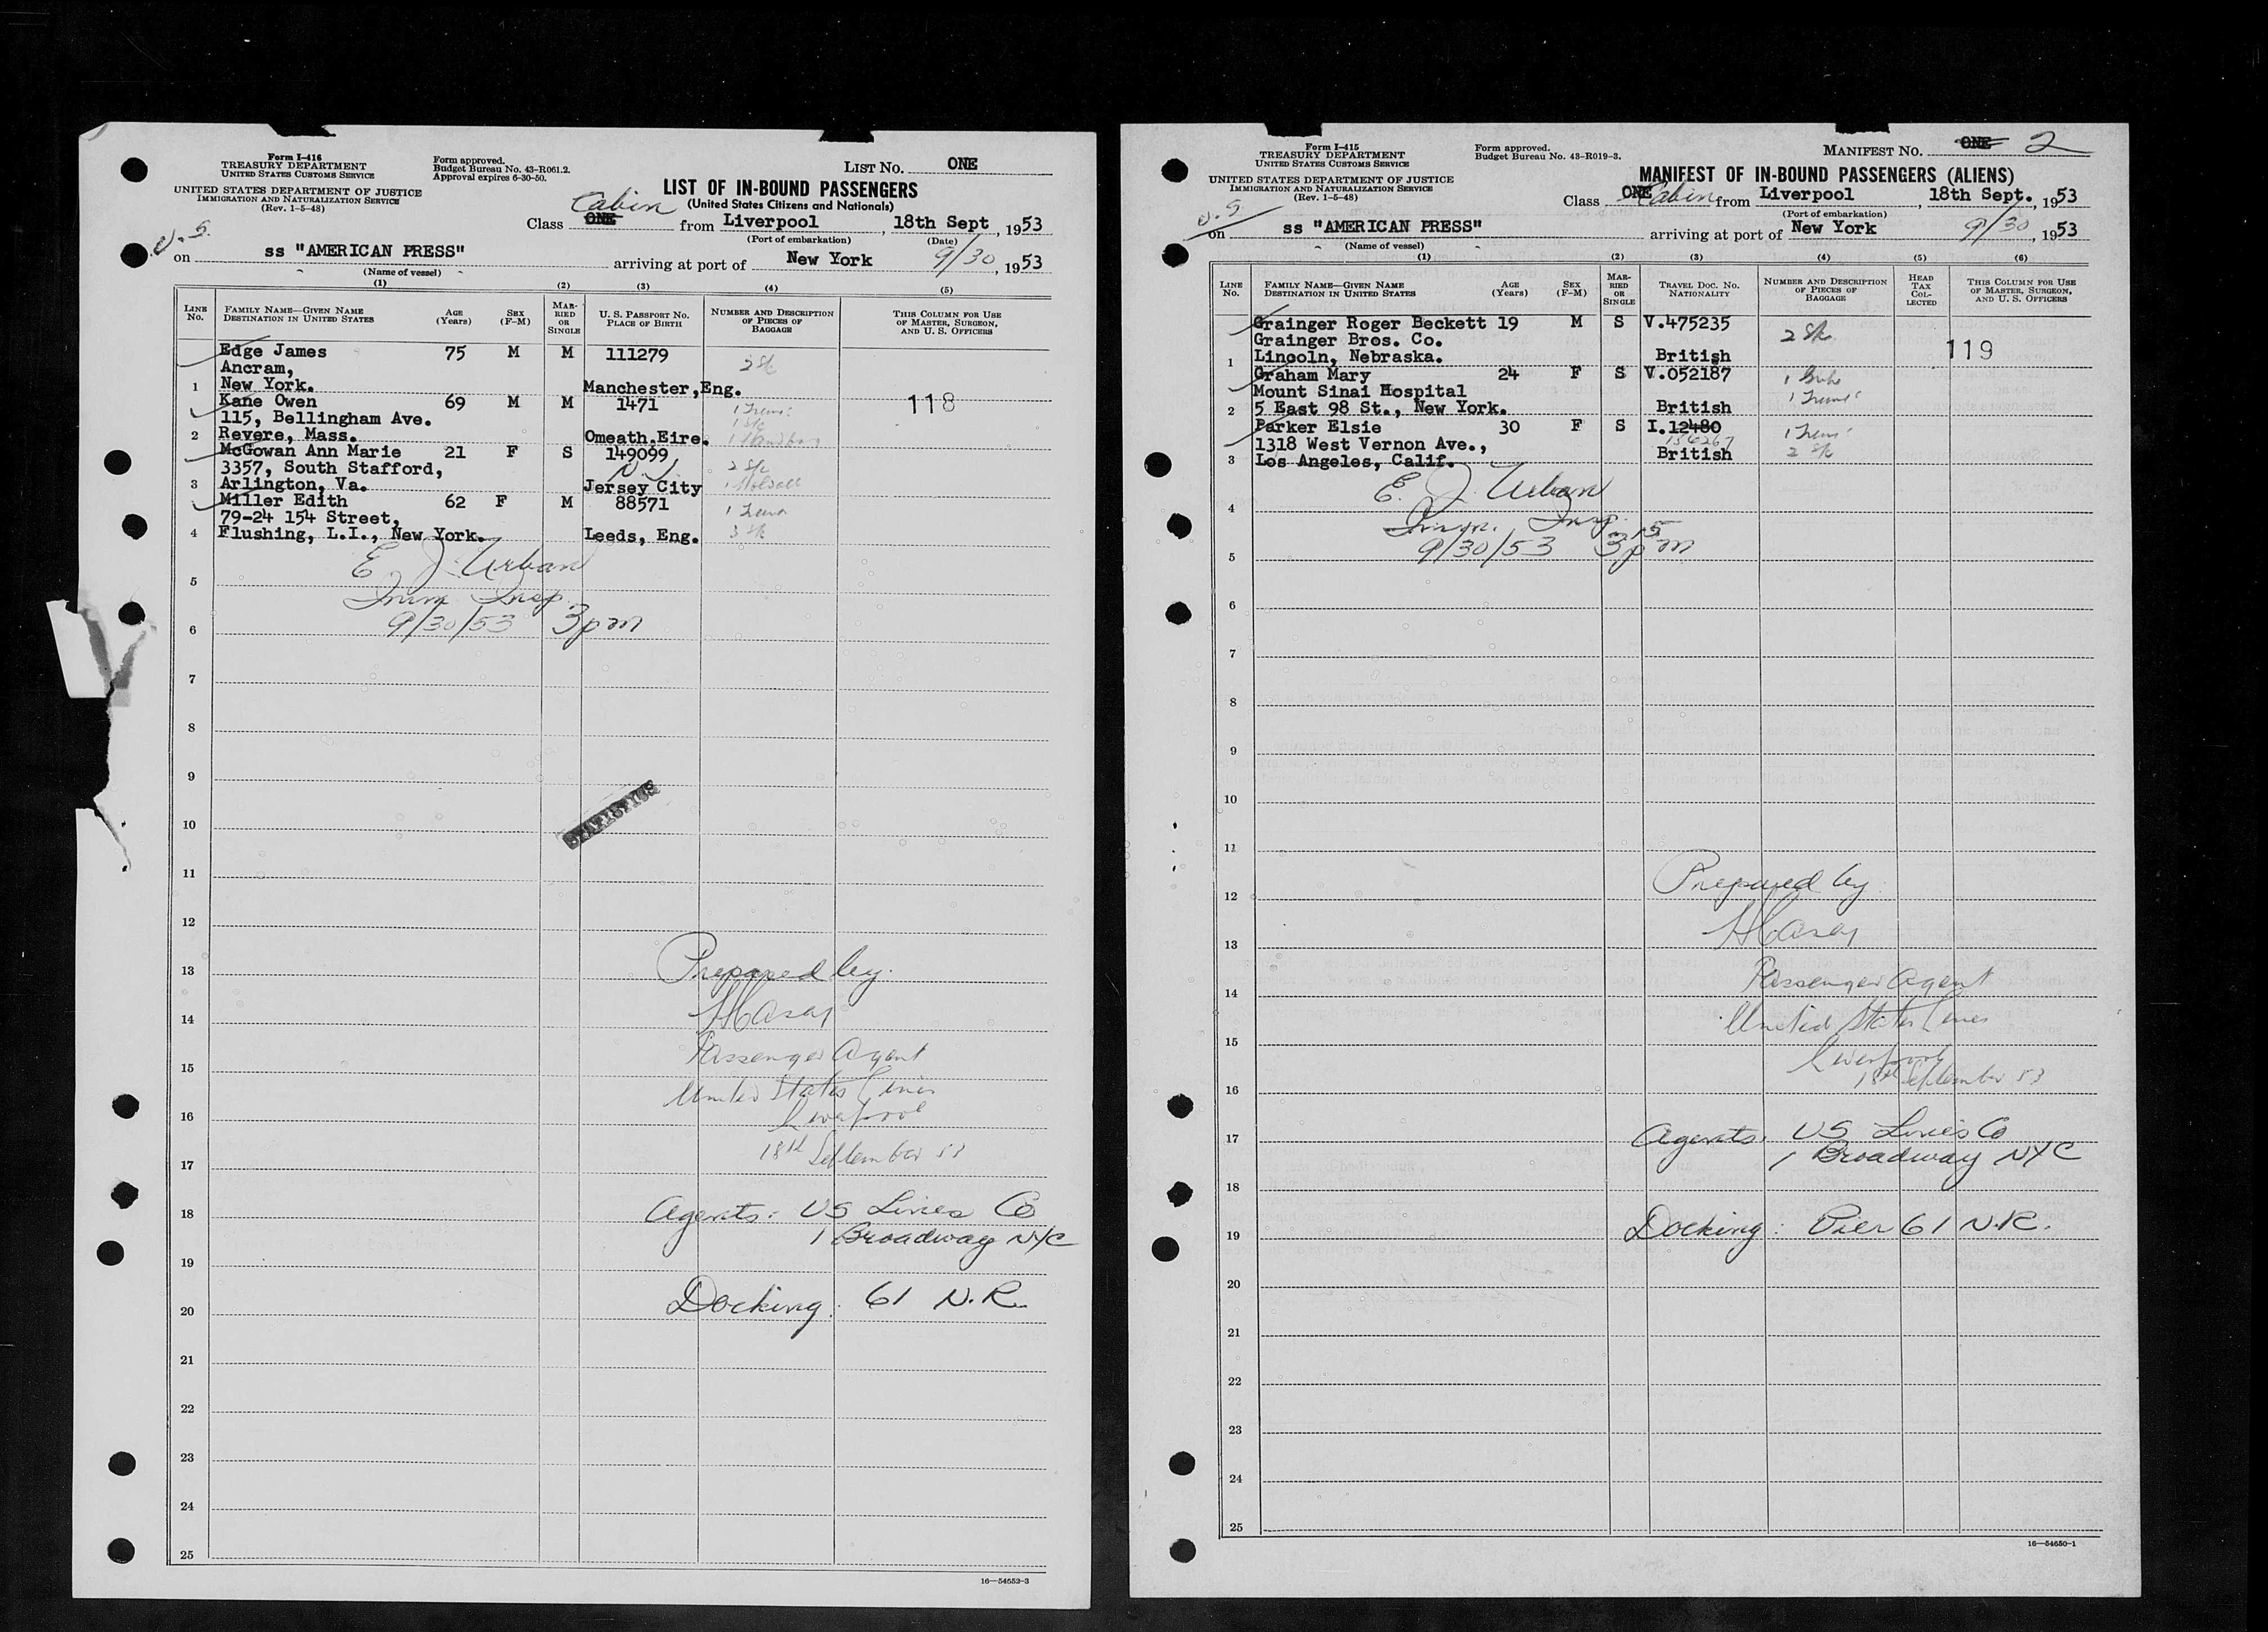 Form I-416
TREASURY DEPARTMENT
UNITED STATES CUSTOMS SERVICE
UNITED STATES DEPARTMENT OF JUSTICE
IMMIGRATION AND NATURALIZATION SERVICE
(Rev. 1-5-48)
Form approved.
Budget Bureau No. 43-R061.2.
Approval expires 6-30-50.
LIST No. ONE
LIST OF IN-BOUND PASSENGERS
(United States Citizens and Nationals)
Cabin
Class ONE from Liverpool, 18th Sept, 1953
(Port of embarkation) (Date)
U.S.
on ss "AMERICAN PRESS" arriving at port of New York 9/30, 1953
(Name of vessel)
(1) (2) (3) (4) (5)
LINE No. FAMILY NAME—GIVEN NAME DESTINATION IN UNITED STATES AGE (Years) SEX (F-M) MARRIED OR SINGLE U. S. PASSPORT NO. PLACE OF BIRTH NUMBER AND DESCRIPTION OF PIECES OF BAGGAGE THIS COLUMN FOR USE OF MASTER, SURGEON, AND U. S. OFFICERS
Edge James 75 M M 111279
Ancram, 2 S/c
1 New York. Manchester, Eng.
Kane Owen 69 M M 1471 118
115, Bellingham Ave.
2 Revere, Mass. Omeath.Eire.
McGowan Ann Marie 21 F S 149099
3357, South Stafford, 2 S/c
3 Arlington, Va. Jersey City
Miller Edith 62 F M 88571
79-24 154 Street,
4 Flushing, L.I., New York. Leeds, Eng. 3 S/c
E J. Urban
5
Imm Insp.
6 9/30/53 3pm
7
8
9
STATISTICS
10
11
12
13 Prepared by.
14
15 Passenger Agent
United States Lines
16 Liverpool
17 18th September 53
18 Agents: US Lines Co
1 Broadway NYC
19
20 Docking: 61 N.R.
21
22
23
24
25
16—54652-3
Form I-415
TREASURY DEPARTMENT
UNITED STATES CUSTOMS SERVICE
UNITED STATES DEPARTMENT OF JUSTICE
IMMIGRATION AND NATURALIZATION SERVICE
(Rev. 1-5-48)
Form approved.
Budget Bureau No. 43-R019-3.
MANIFEST No. ONE 2
MANIFEST OF IN-BOUND PASSENGERS (ALIENS)
Class ONE Cabin from Liverpool, 18th Sept., 1953
(Port of embarkation)
U.S.
on ss "AMERICAN PRESS" arriving at port of New York 9/30, 1953
(Name of vessel)
(1) (2) (3) (4) (5) (6)
LINE No. FAMILY NAME—GIVEN NAME DESTINATION IN UNITED STATES AGE (Years) SEX (F-M) MARRIED OR SINGLE TRAVEL DOC. NO. NATIONALITY NUMBER AND DESCRIPTION OF PIECES OF BAGGAGE HEAD TAX COLLECTED THIS COLUMN FOR USE OF MASTER, SURGEON, AND U. S. OFFICERS
Grainger Roger Beckett 19 M S V.475235
Grainger Bros. Co. 2 S/c
1 Lincoln, Nebraska. British 119
Graham Mary 24 F S V.052187
Mount Sinai Hospital
2 5 East 98 St., New York. British
Parker Elsie 30 F S I.12480
1318 West Vernon Ave., 156267
3 Los Angeles, Calif. British 2 S/c
E. J. Urban
4
Immn. Insp.
5 9/30/53 3 15 pm
6
7
8
9
10
11
12 Prepared by.
13
14 Passenger Agent
15 United States Lines
Liverpool
16 18th September 53
17 Agents: US Lines Co
1 Broadway NYC
18
19 Docking: Pier 61 N.R.
20
21
22
23
24
25
16—54650-1